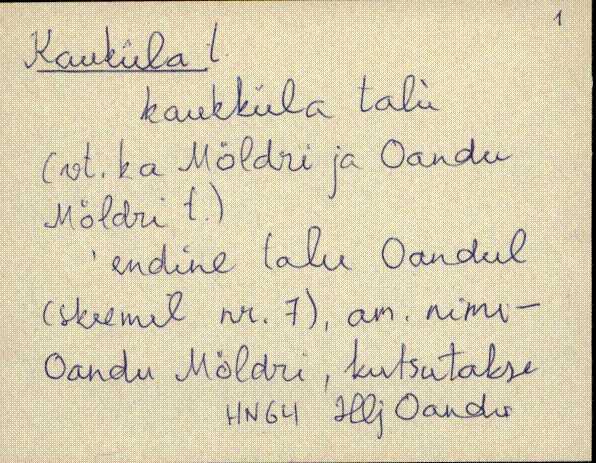 1
Kauküla t.
kaukküla talu
(vt. ka Möldri ja Oandu
Möldri t.)
'endine talu Oandul
(skeemil nr. 7), am. nimi-
Oandu Möldri, kutsutakse
HNG4 Hlj Oandu